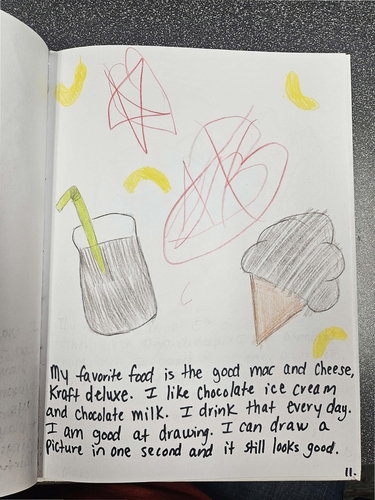 My favorite food is the good mac and cheese,
Kraft deluxe. I like Chocolate ice cream
and chocolate milk. I drink that every day.
I am good at drawing. I can draw a
picture in one second and it still looks good.
11.